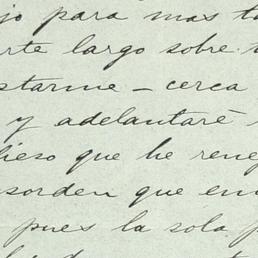 jo para mas ta
rte largo sobre
starme — cerca
y adelantaré
lieso que he rene
sorden que en
pues la sola p